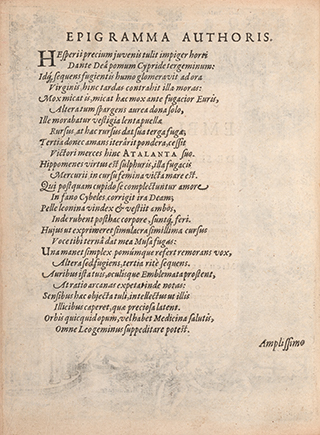 EPIGRAMMA AUTHORIS.
HEsperii precium juvenis tulit impiger horti
Dante Deâ pomum Cypride tergeminum:
Idq́; sequens fugientis humo glomeravit ad ora
Virginis, hinc tardas contrahit illa moras:
Mox micat is, micat hac mox ante fugacior Euris,
Alteratum spargens aurea dona solo,
Ille morabatur vestigia lenta puellæ
Rursus, at hac rursus dat sua terga fugæ,
Tertia donec amans iterârit pondera, cessit
Victori merces hinc ATALANTA suo.
Hippomenes virtus est sulphuris, illa fugacis
Mercurii, in cursu femina victa mare est.
Qui postquam cupido se complectuntur amore
In fano Cybeles corrigit ira Deam;
Pelle leonina vindex & vestiit ambos,
Inde rubent posthac corpore, suntq́; feri.
Hujus ut exprimeret simulacra simillima cursus
Voce tibi ternâ dat mea Musa fugas:
Una manet simplex pomumque refert remorans vox,
Altera sed fugiens, tertia ritè sequens.
Auribus ista tuis, oculisque Emblemata prostent,
At ratio arcanas expetat inde notas:
Sensibus hæc objecta tuli, intellectus ut illis
Illicibus caperet, quæ preciosa latent.
Orbis quicquid opum, vel habet Medicina salutis,
Omne Leo geminus suppeditare potest.
Amplissimo